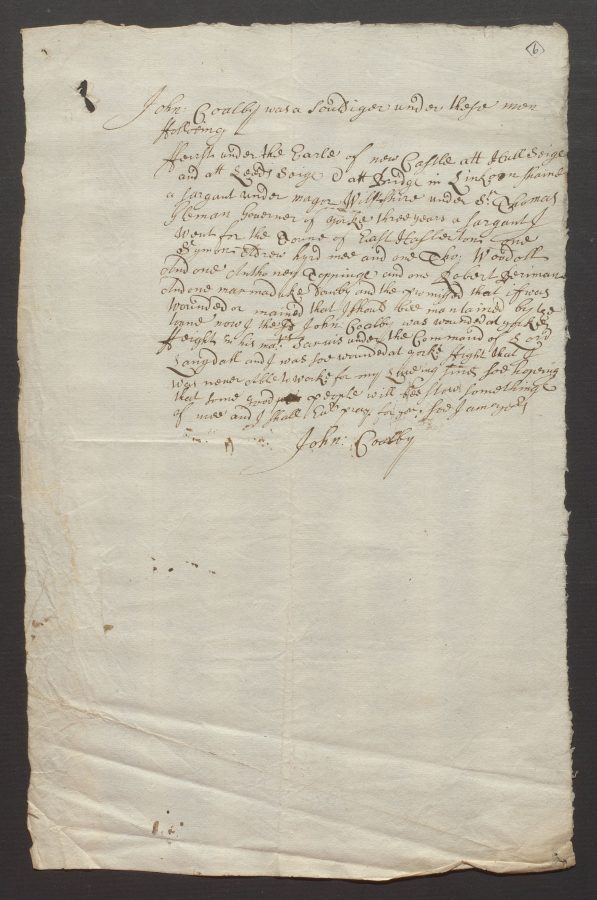 6
John: Coalby was a souldiger under these men
ffolloeing
ffeirst under the Earle of new Castle att Hull Seige
and att Leeds Seige & att Bridge in Linkcon shaire
a sargant under magor Wilkshire under Sr. Thomas
Gleman Governer of Yorke three years a sargant I
went for the Towne of East Haslerton one
Symon hyrd mee and one Tho: Woodall
And one Anthoney Topninge and one Robert Beriman
And one marmaduke Dowby and the promissed that iff I was
wounded or maned that I should bee mantained by ye
towne now I the sd John Coalby was wounded at yorke
ffeight in his mats. Sarvis under the Command of Lord
Langdall and I was soe wounded at yorke ffight that I
was never able to worke for my Liveing sinc soe hopeing
that some good people will bestow something
of mee and I shall Ever pray for yo: soe I am yors
John: Coalby